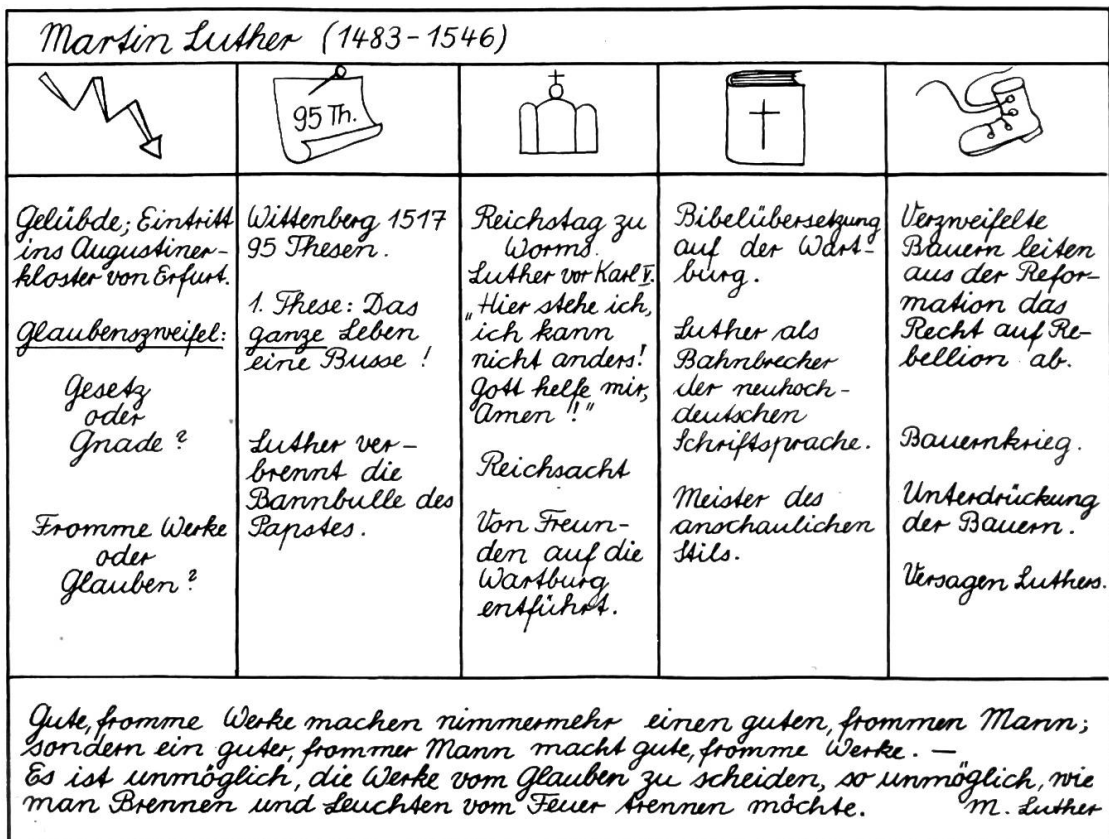 Martin Luther (1483-1546)
95 Th.
Gelübde; Eintritt
ins Augustiner-
kloster von Erfurt.
Glaubenszweifel:
Gesetz
oder
Gnade?
Fromme Werke
oder
Glauben?
Wittenberg 1517
95 Thesen.
1. These: Das
ganze Leben
eine Busse!
Luther ver-
brennt die
Bannbulle des
Papstes.
Reichstag zu
Worms.
Luther vor Karl V.
„Hier stehe ich,
ich kann
nicht anders!
Gott helfe mir,
Amen!!"
Reichsacht
Von Freun-
den auf die
Wartburg
entführt.
Bibelübersetzung
auf der Wart-
burg.
Luther als
Bahnbrecher
der neuhoch-
deutschen
Schriftsprache.
Meister des
anschaulichen
Stils.
Verzweifelte
Bauern leiten
aus der Refor-
mation das
Recht auf Re-
bellion ab.
Bauernkrieg.
Unterdrückung
der Bauern.
Versagen Luthers.
Gute, fromme Werke machen nimmermehr einen guten, frommen Mann;
sondern ein guter, frommer Mann macht gute, fromme Werke. —
Es ist unmöglich, die Werke vom Glauben zu scheiden, so unmöglich, wie
man Brennen und Leuchten vom Feuer trennen möchte. M. Luther